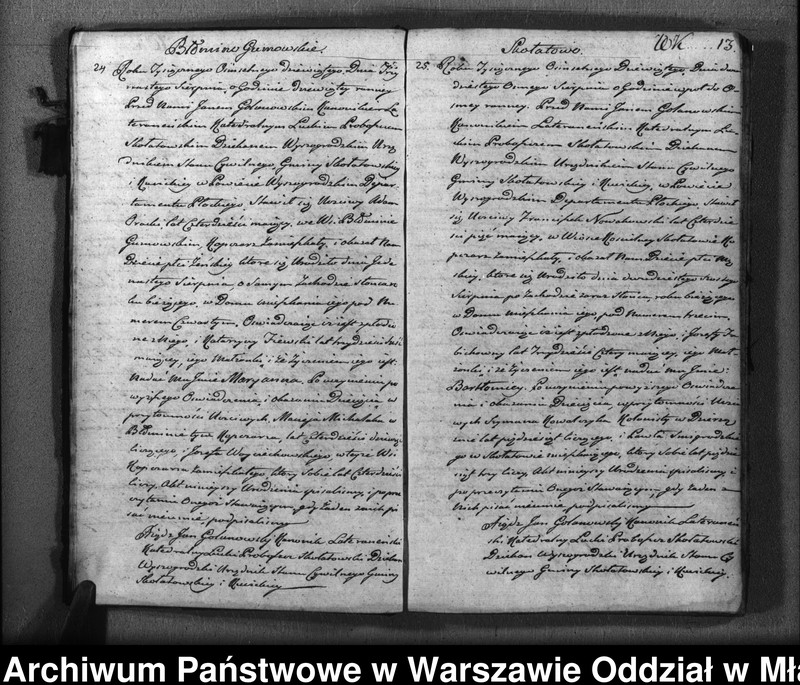 Błomino Gumowskie.
24 Roku Tysiącznego Ośmsetnego dziewiątego, Dnia Trzy
nastego Sierpnia, o Godzinie dziewiąty ranney
Przed Nami Janem Golanowskim Kanonikiem La
teraneńskim Katedralnym Luckim Proboszczem
Skołatowskim Dziekanem Wyszogrodzkim Urzę
dnikiem Stanu Cywilnego, Gminy Skołatowskiey
i w Powiecie Wyszogrodzkim Depar
tamentu Płockiego, Stawił się Uczciwy Adam
lat Czterdzieści maiący, we Wsi Błominie
Gumowskim, Kopczarz Zamieszkały, i okazał Nam
Dziecię płci Żeńskiey które się Urodziło dnia Jede
nastego Sierpnia, o Samym Zachodzie Słońca ro
ku bieżącego, w Domu mieszkania iego pod Nu
merem Czwartym, Oświadczaiąc iż iest spłodzo
ne z Niego, i Katarzyny lat trzydzieści
maiącey, iego Małżonki; i że życzeniem iego iest
Nadać mu Jmie Maryanna. Po uczynieniu po
wyższego Oświadczenia, i okazaniu Dziecięcia w
przytomności Uczciwych, Macieja Michalaka w
Błominie tyże Kopczarza, lat Czterdzieści
liczącego, i Józefa Woyciechowskiego, w teyże Wsi
Kopczarza Zamieszkałego, który Sobie lat Czterdzieści
liczy, Akt ninieyszy Urodzenia spisalismy, i poprze
czytaniu Onegoż Stawaiącym, gdy żaden z nich pi
sać nieumie, podpisalismy
Xiądz Jan Golanowski Kanonik Lateraneński
Katedralny Lucki Proboszcz Skołatowski Dziekan
Wyszogrodzki Urzędnik Stanu Cywilnego Gminy
Skołatowskiey i
Skołatowo. 13.
25. Roku Tysiącznego Ośmsetnego Dziewiątego, Dnia dwu
dziestego Osmego Sierpnia o Godzinie wpoł do O
smey ranney. Przed Nami Janem Golanowskim
Kanonikiem Lateraneńskim Katedralnym Lu
ckim Proboszczem Skołatowskim Dziekanem
Wyszogrodzkim Urzędnikiem Stanu Cywilnego
Gminy Skołatowskiey i w Powiecie
Wyszogrodzkim Departamentu Płockiego, Stawił
się Uczciwy Franciszek Nowakowski lat Czterdzie
ści pięć maiący, w Wiosce Skołatowie Ko
pczarz Zamieszkały, i okazał Nam Dziecię płci Mę
skiey, które się Urodziło dnia dwudziestego
Sierpnia po Zachodzie zaraz Słońca, roku bieżącego
w Domu mieszkania iego, pod Numerem trzecim,
Oświadczaiąc iż iest spłodzone z Niego, i Józefy Ja
lat Trzydzieści Cztery maiącey, iego Mał
żonki; i że życzeniem iego iest nadać mu Jmie:
Bartłomiey. Po uczynieniu powyższego Oświadcze
nia i okazaniu Dziecięcia, w przytomności Uczci
wych Szymona Kowalczyka w
lat pięćdziesiąt liczącego, i Pawła
go w Skołatowie mieszkaiącego, który Sobie lat pięćdzie
siąt trzy liczy, Akt ninieyszy Urodzenia spisalismy, i
po przeczytaniu Onegoż Stawaiącym, gdy żaden z
nich pisać nieumie, podpisalismy
Xiądz Jan Golanowski Kanonik Lateraneń
ski Katedralny Lucki Proboszcz Skołatowski
Dziekan Wyszogrodzki Urzędnik Stanu Cy
wilnego Gminy Skołatowskiey i
Archiwum Państwowe w Warszawie Oddział w Mła